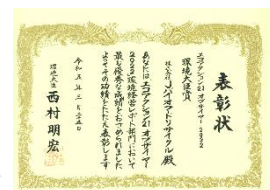 表彰状
エコアクション21 オブザイヤー2022
環境大臣賞
株式会社Jバイオフードリサイクル 殿
あなたはエコアクション21 オブザイヤー
2022環境経営レポート部門において
最も優秀な成績をおさめられました
よってその功績をたたえ表彰します
環境大臣
西村明宏